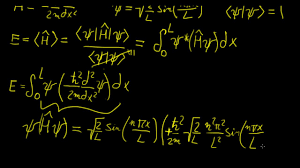 H = - ħ²/2m d²/dx²   ψ = √(2/L) sin(nπx/L)   ⟨ψ|ψ⟩ = 1
E = ⟨Ĥ⟩ = ⟨ψ|Ĥ|ψ⟩ / ⟨ψ|ψ⟩ =1 = ∫₀ᴸ ψ*(Ĥψ)dx
E = ∫₀ᴸ ψ(ħ²d²/2mdx² ψ)dx
ψ*(Ĥψ) = √(2/L) sin(nπx/L) (+ħ²/2m √(2/L) n²π²/L² sin(nπx/L